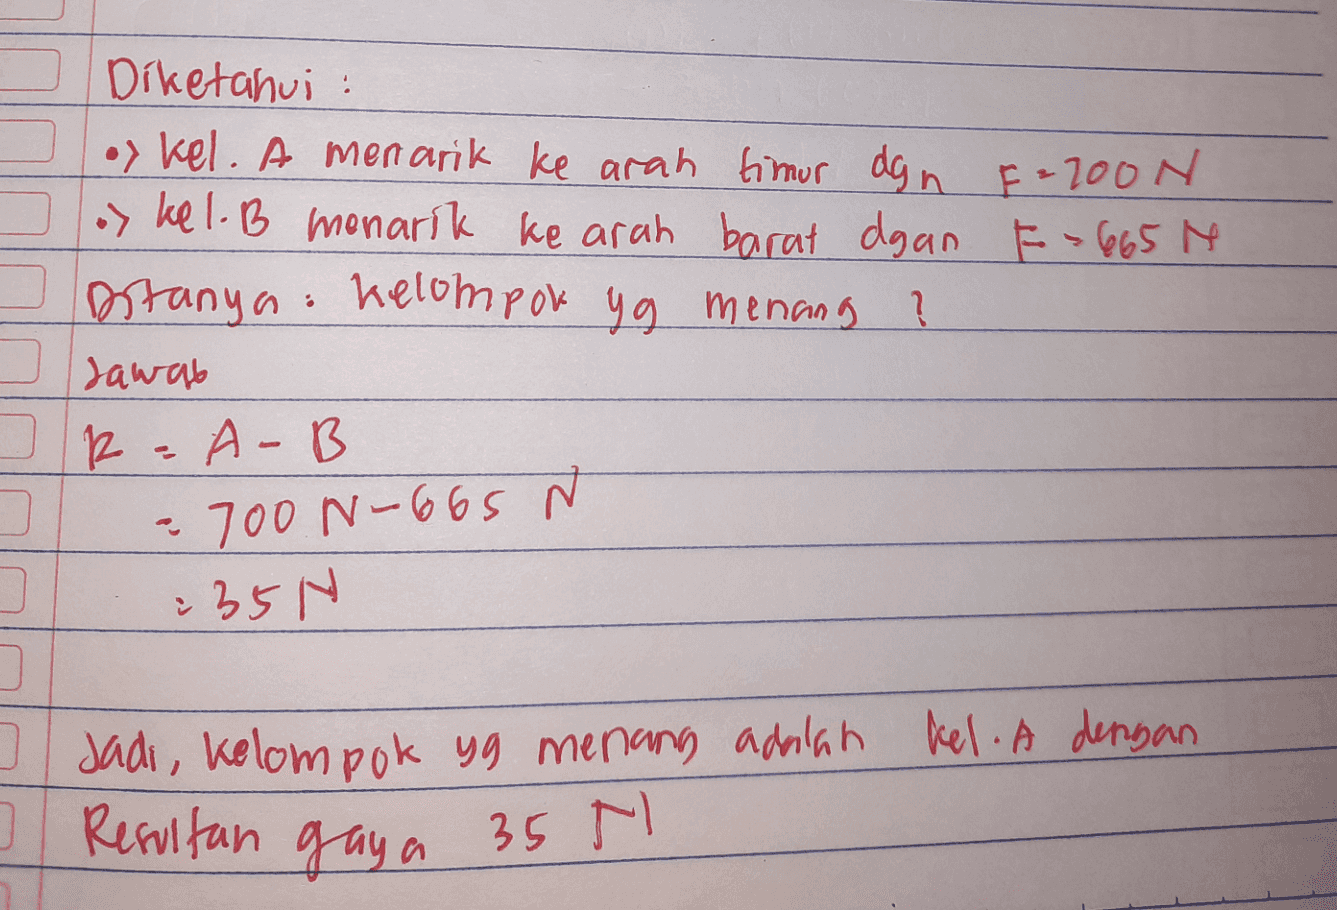 Diketahui :
•> kel. A menarik ke arah timur dgn F = 700 N
•> kel. B menarik ke arah barat dgan F = 665 N
Ditanya : kelompok yg menang ?
Jawab
R = A - B
= 700 N - 665 N
= 35 N
Jadi, kelompok yg menang adalah kel. A dengan
Resultan gaya 35 N